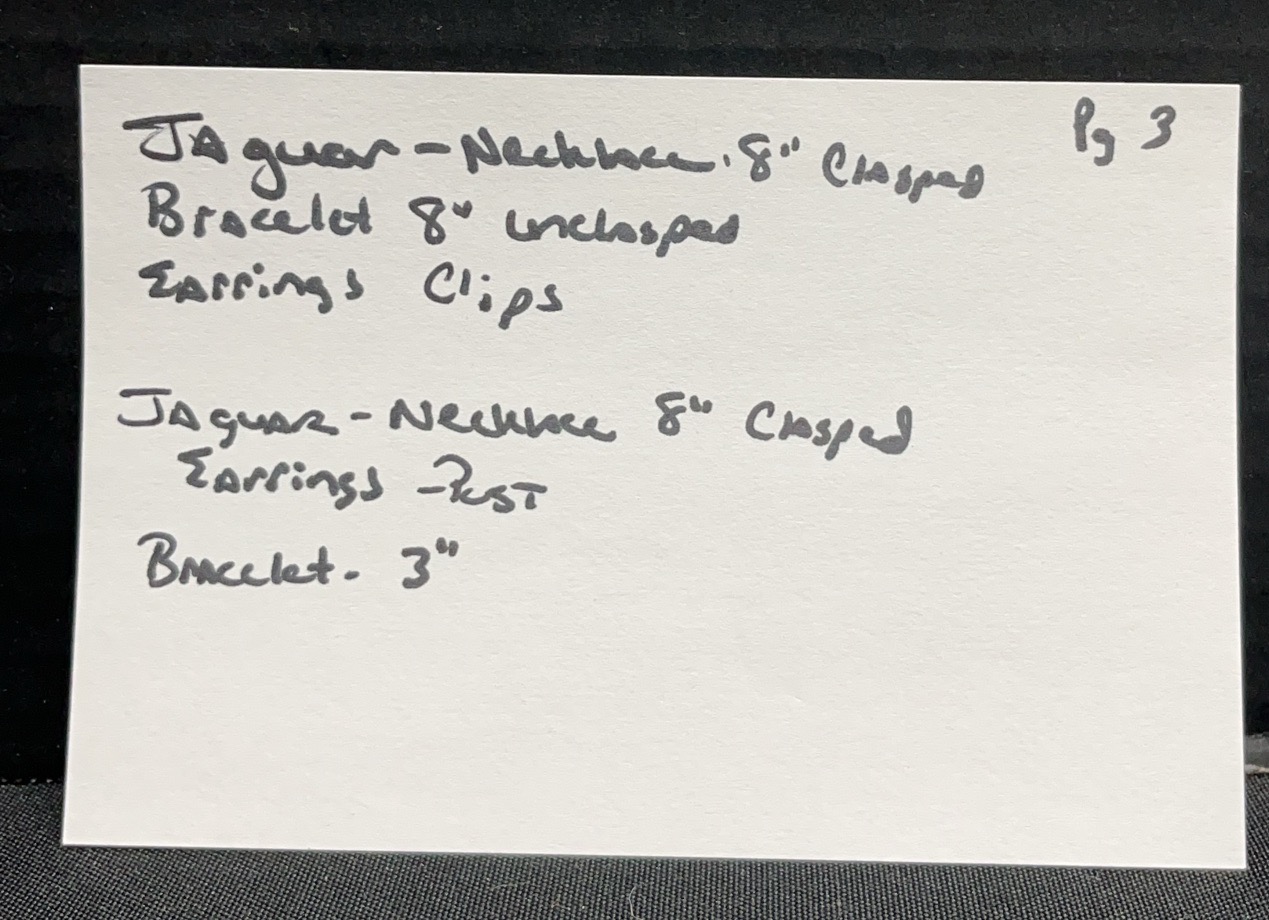 Pg 3
Jaguar - Necklace. 8" Clasped
Bracelet 8" unclasped
Earrings Clips
Jaguar - Necklace 8" Clasped
Earrings - Post
Bracelet. 3"